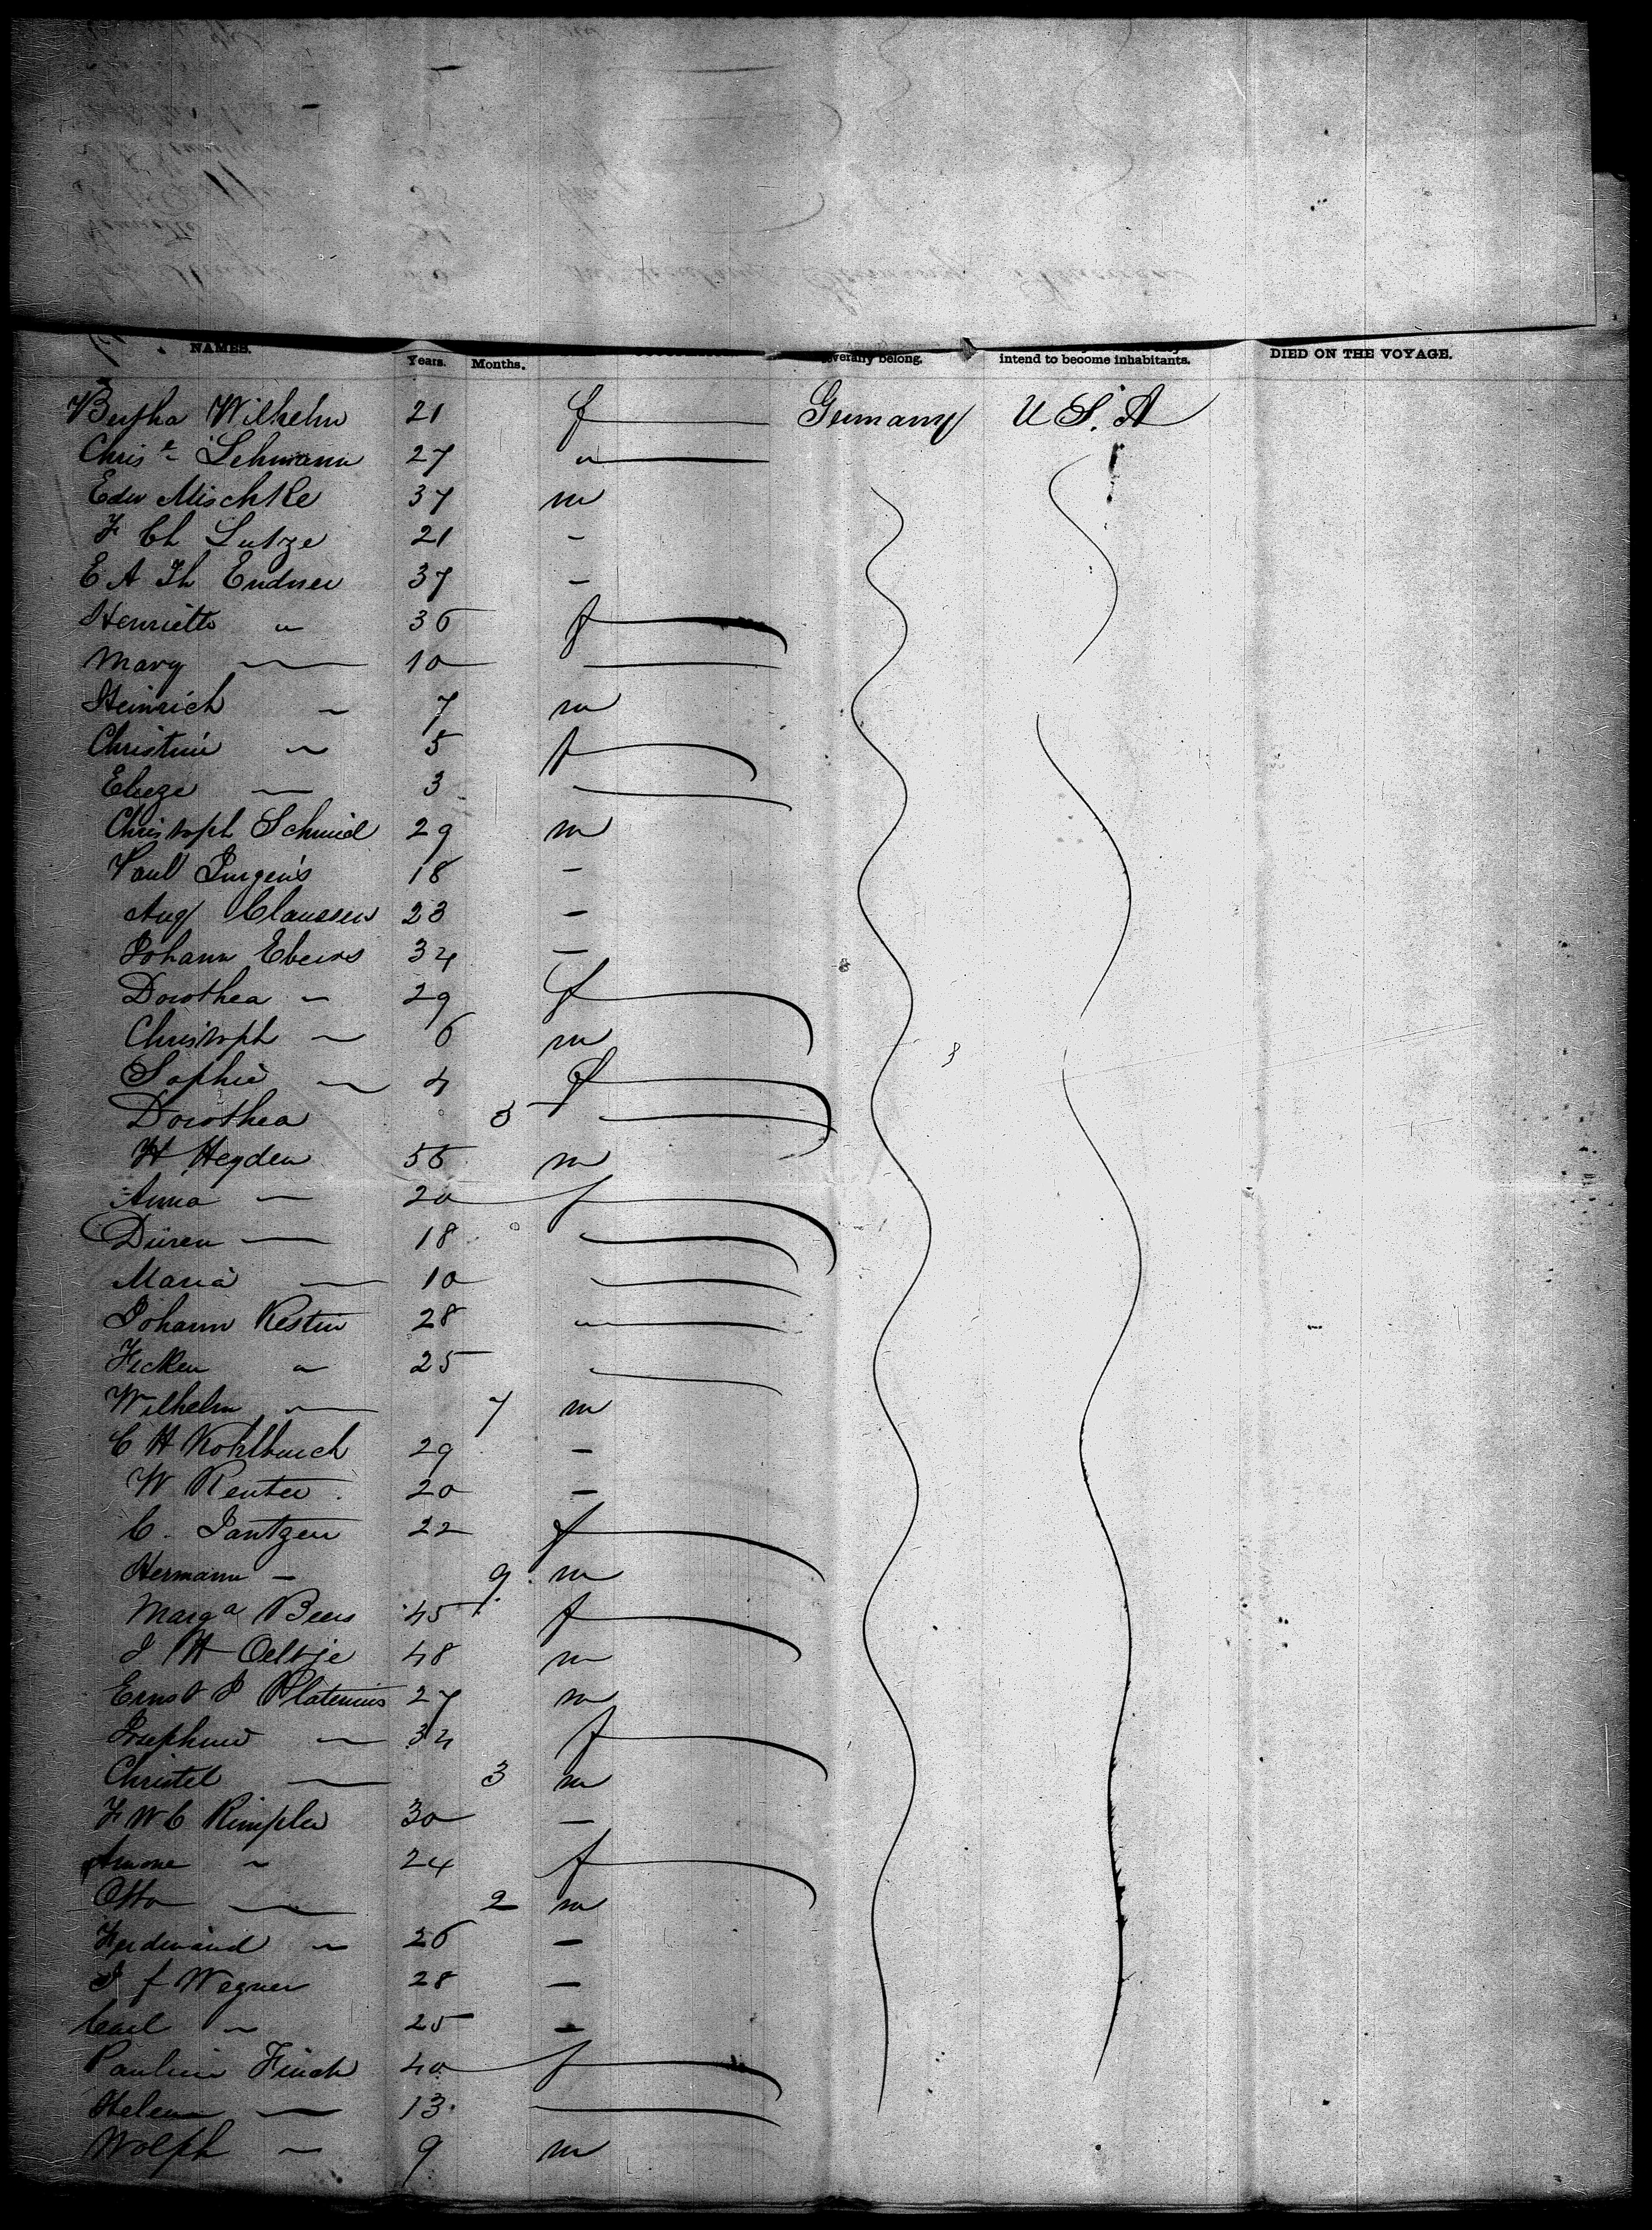 NAMES. Years. Months. severally belong. intend to become inhabitants. DIED ON THE VOYAGE.
Bertha Wilhelm 21 f Germany U S. A
Chris^t Lehmann 27 "
Edw Mischke 37 m
F Ch Lutze 21 -
E A Th Endner 37 -
Henriette " 36 f
Mary — 10
Heinrich - 7 m
Christine - 5 f
Elieze — 3
Christoph Schmid 29 m
Paul Jurgens 18 -
Aug Claussen 23 -
Johann Ebeers 34 -
Dorothea - 29 f
Christoph - 6 m
Sophie - 4 f
Dorothea 3
H Heyden 56 m
Anna - 20 f
Düren — 18
Maria — 10
Johann Kestin 28 "
Ficken " 25
Wilhelm — 7 m
C H Kohlbusch 29 -
W Renter 20 -
C. Jantzen 22 f
Hermann - 9 m
Marg^a Beers 45 f
J H Oeltje 48 m
Ernst J Platenius 27 m
Josephine - 34 f
Christel — 3 m
F W C Rimpler 30 -
- 24 f
Otto — 2 m
Ferdinand - 26 -
J f Wegner 28 -
Carl - 25 -
Pauline Finch 40 f
Helene — 13
Wolph - 9 m